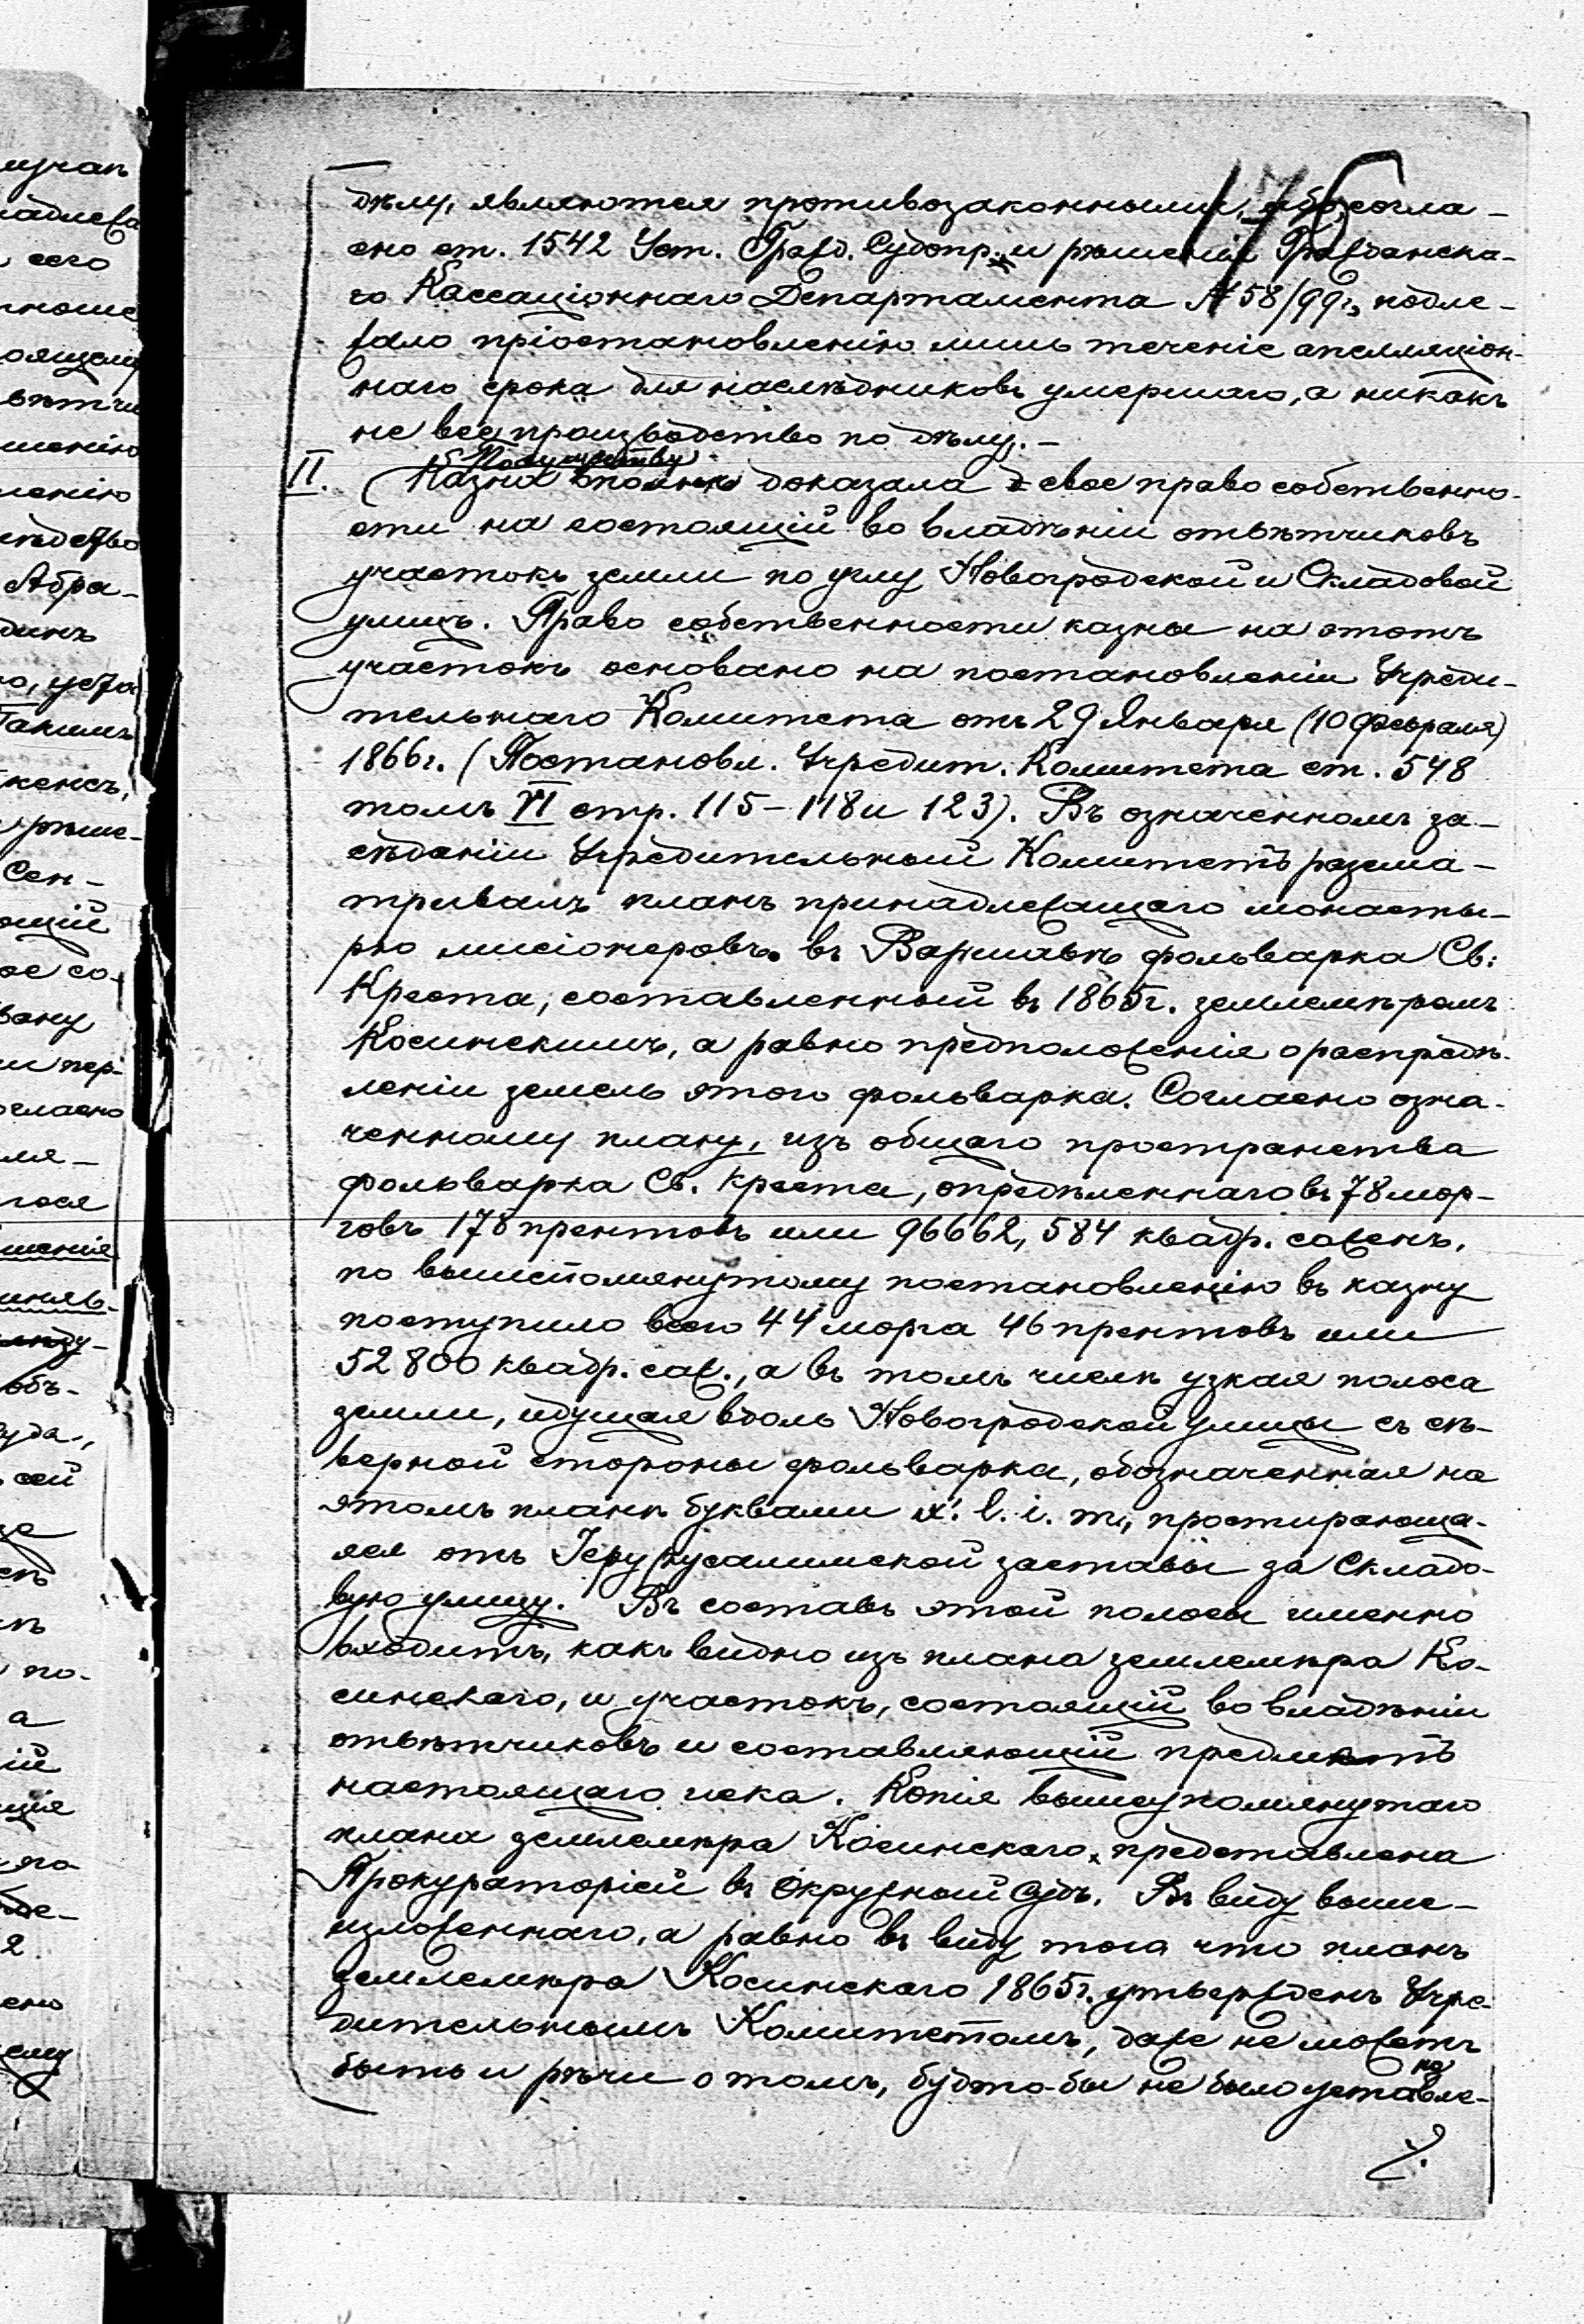 176
дѣлу, являются противозаконными, ибо, согла-
сно ст. 1542 Уст. Гражд. Судопр. и рѣшенія Гражданска-
го Кассаціоннаго Департамента № 58/99г., подле-
жало пріостановленію лишь теченіе апелляціон-
наго срока для наслѣдниковъ умершаго, а никакъ
не все производство по дѣлу. –
По существу
II. Казна вполнѣ доказала свое право собственно-
сти на состоящій во владѣніи отвѣтчиковъ
участокъ земли по углу Новогродской и Складовой
улицъ. Право собственности казны на этотъ
участокъ основано на постановленіи Учреди-
тельнаго Комитета отъ 29 Января (10 Февраля)
1866г. (Постановл. Учредит. Комитета ст. 548
томъ VI стр. 115–118 и 123). Въ означенномъ за-
сѣданіи Учредительный Комитетъ разсма-
тривалъ планъ принадлежащаго монасты-
рю мисіонеровъ въ Варшавѣ фольварка Св:
Креста, составленный въ 1865г. землемѣромъ
Косинскимъ, а равно предположенія о распредѣ-
леніи земель этого фольварка. Согласно озна-
ченному плану, изъ общаго пространства
фольварка Св. Креста, опредѣленнаго въ 78 мор-
говъ 178 прентовъ или 96662,584 квадр. сажень,
по вышепомянутому постановленію въ казну
поступило всего 44 морга 46 прентовъ или
52800 квадр. саж., а въ томъ числѣ узкая полоса
земли, идущая вдоль Новогродской улицы съ сѣ-
верной стороны фольварка, обозначенная на
этомъ планѣ буквами l. i. m., простирающа-
яся отъ Іерузусалимской заставы за Складо-
вую улицу. Въ составъ этой полосы именно
входитъ, какъ видно изъ плана землемѣра Ко-
синскаго, и участокъ, состоящій во владѣніи
отвѣтчиковъ и составляющій предметъ
настоящаго иска. Копія вышеупомянутаго
плана землемѣра Косинскаго, представлена
Прокураторіей въ Окружный Судъ. Въ виду выше-
изложеннаго, а равно въ виду того что планъ
землемѣра Косинскаго 1865г. утвержденъ Учре-
дительнымъ Комитетомъ, даже не можетъ
быть и рѣчи о томъ, будто-бы не было устано̂вле-